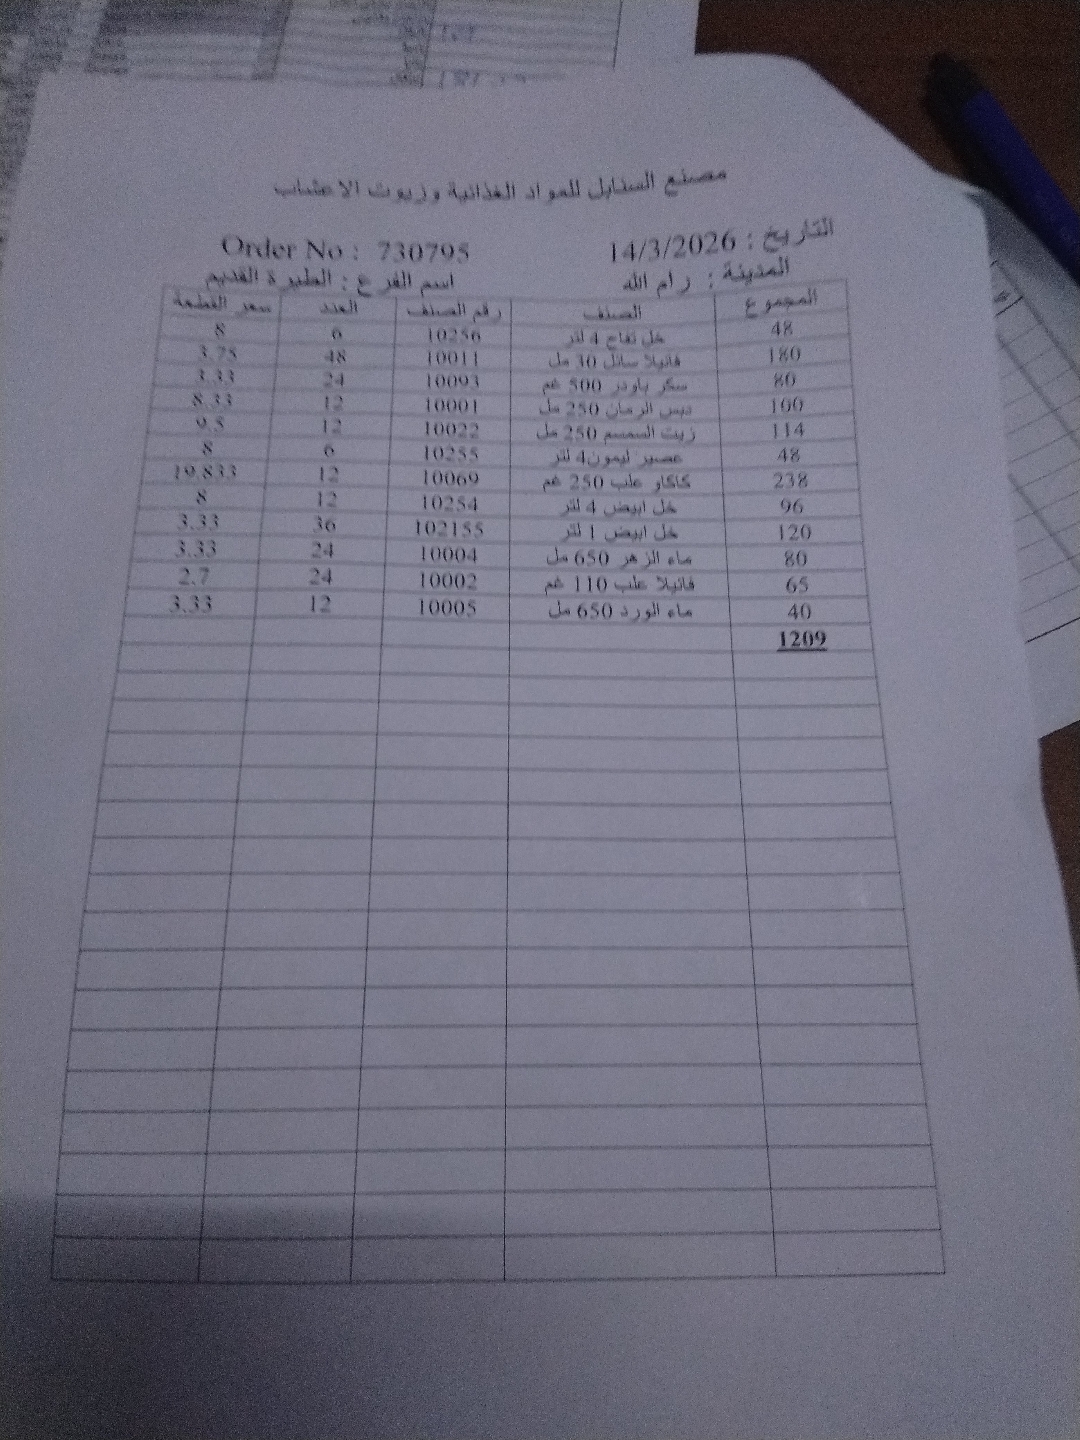 مصنع السنابل للمواد الغذائية وزيوت الاعشاب
التاريخ : 14/3/2026 Order No : 730795
المدينة : رام الله اسم الفرع : الطيرة القديم
المجموع الصنف رقم الصنف العدد سعر القطعة
48 خل تفاح 4 لتر 10256 6 8
180 فانيلا سائل 30 مل 10011 48 3.75
80 سكر باودر 500 غم 10093 24 3.33
100 دبس الرمان 250 مل 10001 12 8.33
114 زيت السمسم 250 مل 10022 12 9.5
48 عصير ليمون4 لتر 10255 6 8
238 كاكاو علب 250 غم 10069 12 19.833
96 خل ابيض 4 لتر 10254 12 8
120 خل ابيض 1 لتر 102155 36 3.33
80 ماء الزهر 650 مل 10004 24 3.33
65 فانيلا علب 110 غم 10002 24 2.7
40 ماء الورد 650 مل 10005 12 3.33
1209